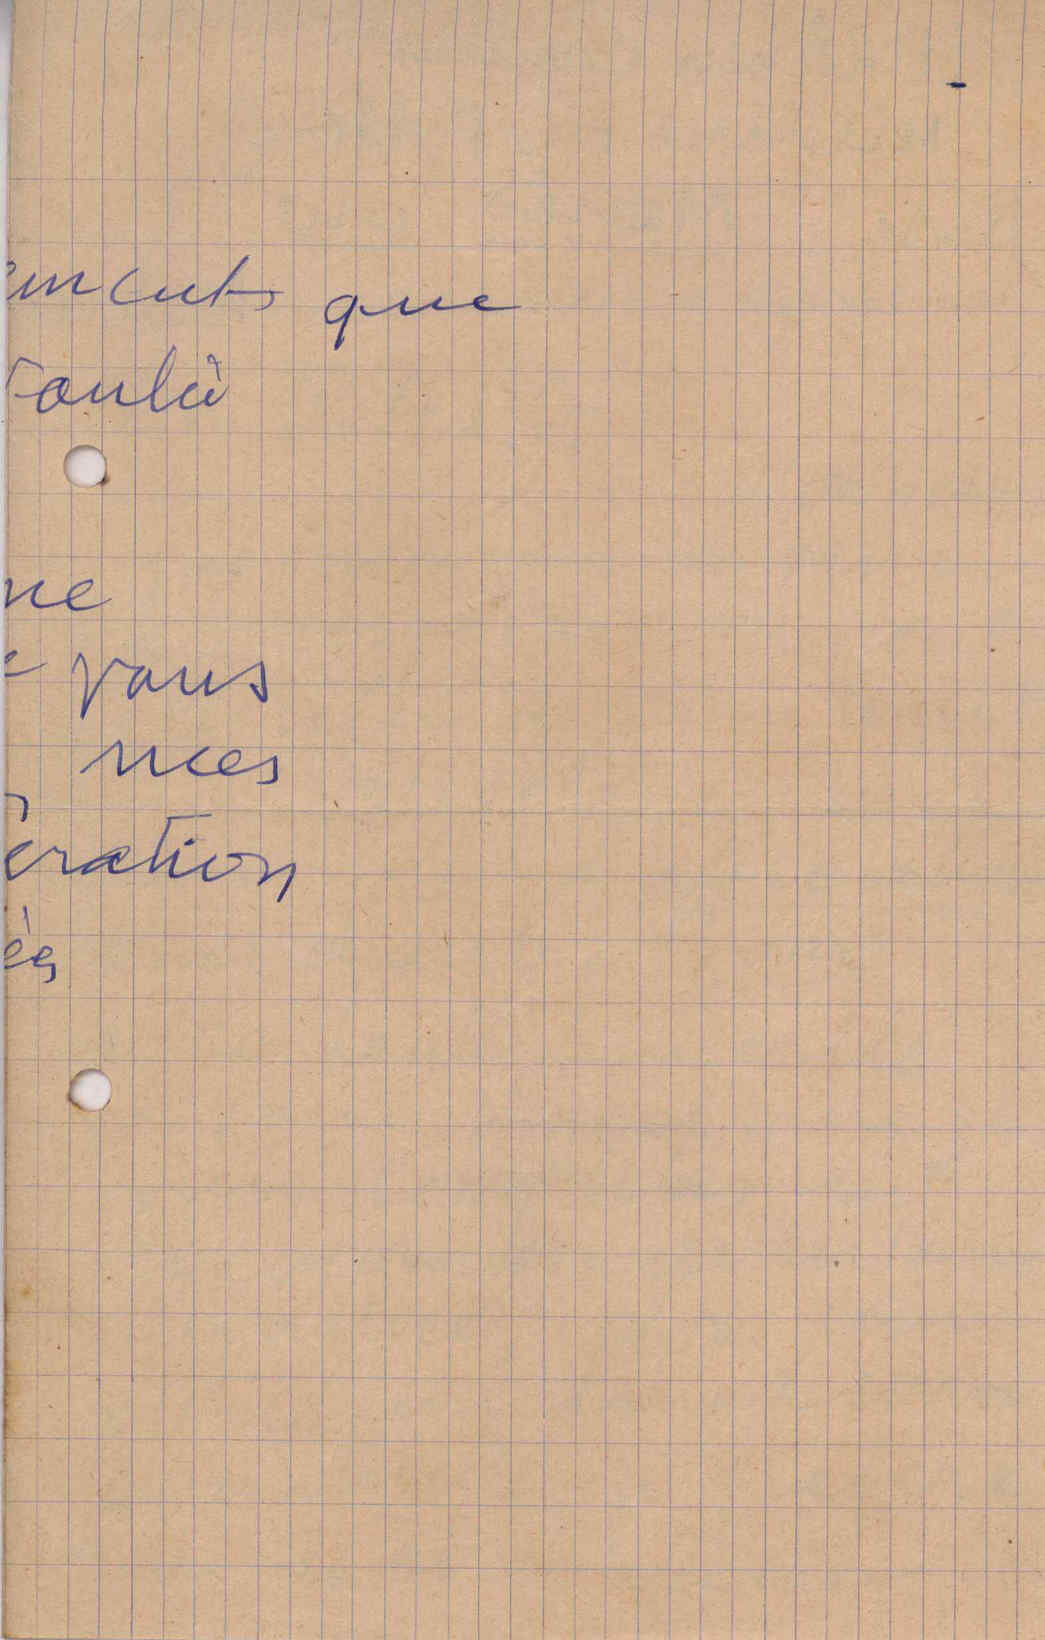 ments que
voulu
ne
vous
mes
ération
és